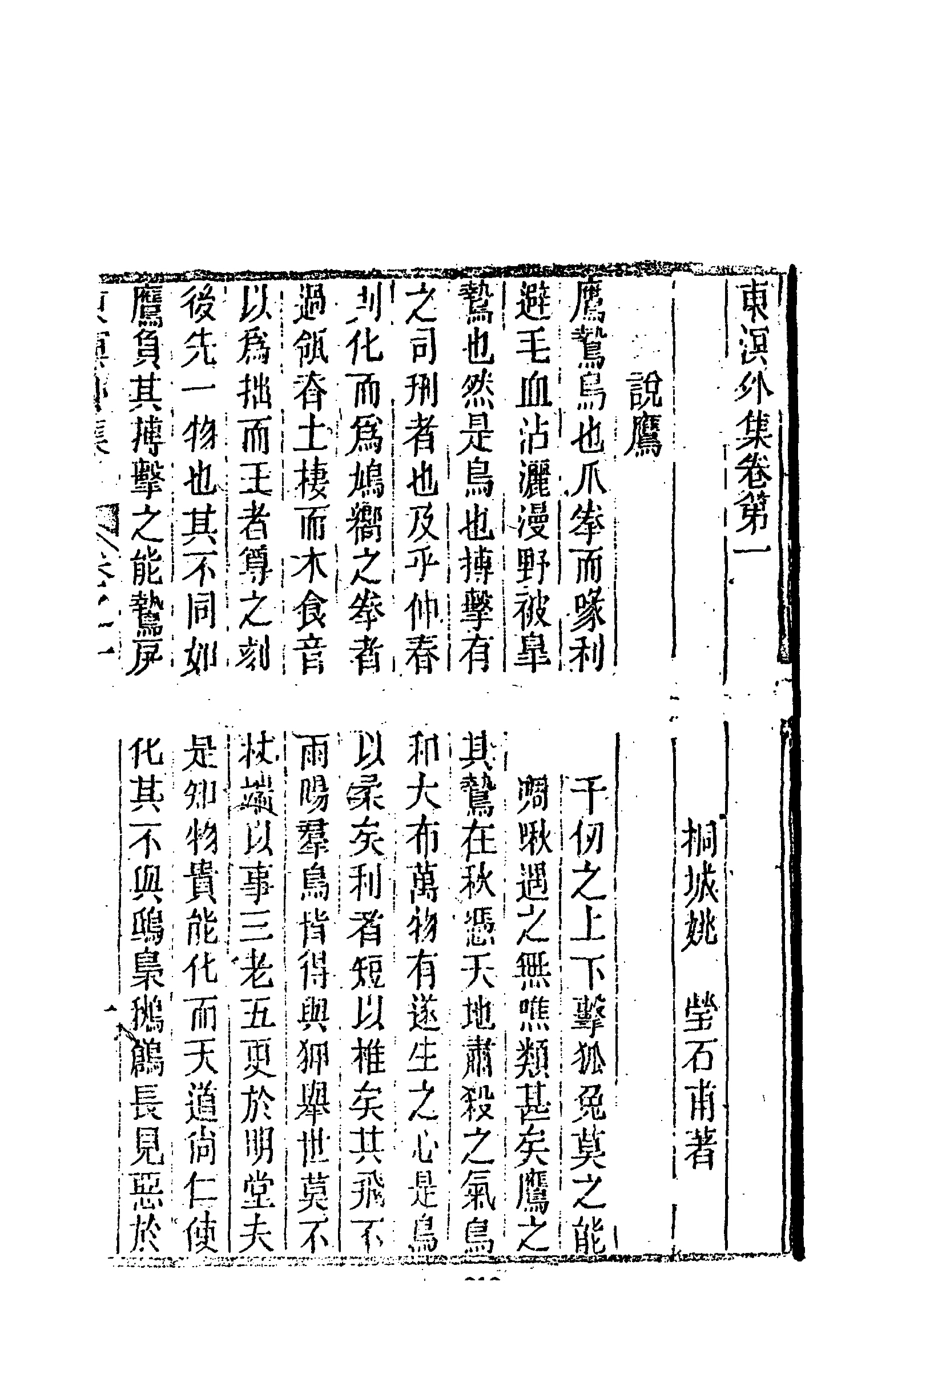 東溟外集卷第一
桐城姚　瑩石甫著
說鷹
鷹鷙鳥也爪拳而喙利千仞之上下擊狐兔莫之能
避毛血沾灑漫野被臯凋啾遇之無噍類甚矣鷹之
鷙也然是鳥也搏擊有其鷙在秋憑天地肅殺之氣鳥
之司刑者也及乎仲春和大布萬物有遂生之心是鳥
則化而爲鳩嚮之拳者以柔矣利者短以椎矣其飛不
過瓴脊土棲而木食音雨暘羣鳥皆得與狎舉世莫不
以爲拙而王者尊之刻杖端以事三老五更於明堂夫
後先一物也其不同如是知物貴能化而天道尙仁使
鷹負其搏擊之能鷙戾化其不與鴟梟鵂鶹長見惡於
東溟外集　卷之一　一